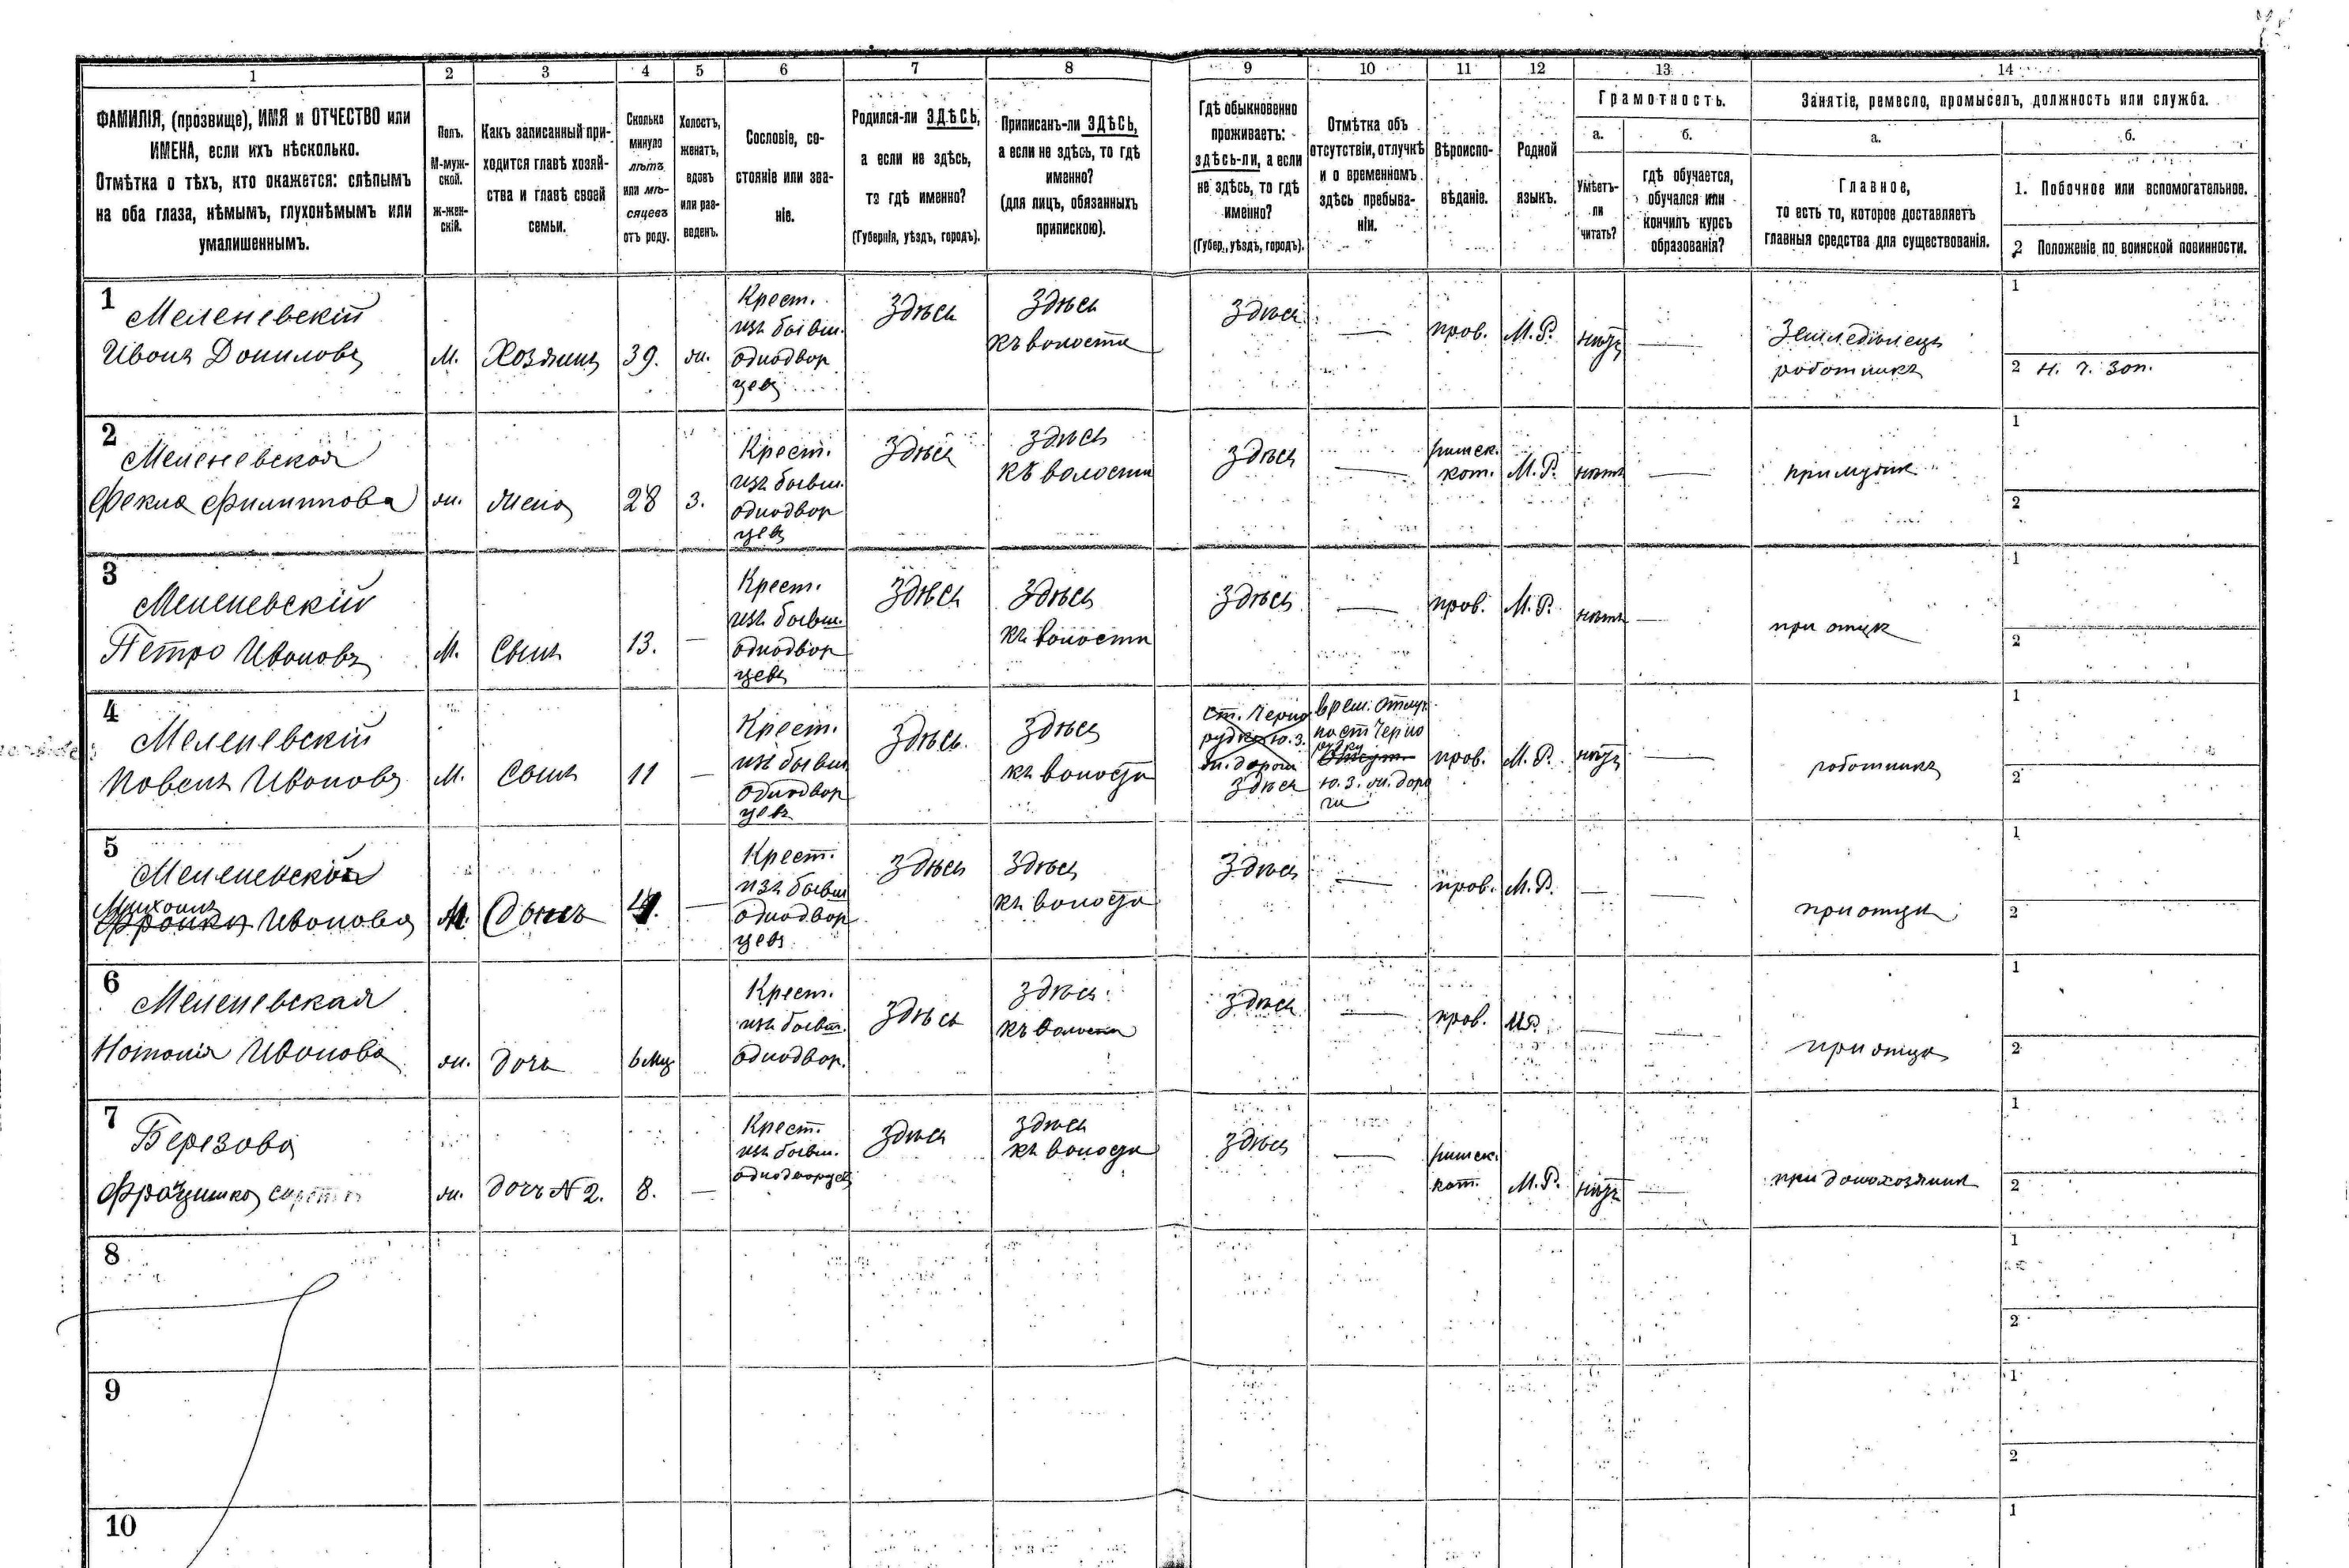 1 2 3 4 5 6 7 8 9 10 11 12 13 14
ФАМИЛІЯ, (прозвище), ИМЯ и ОТЧЕСТВО или
ИМЕНА, если ихъ нѣсколько.
Отмѣтка о тѣхъ, кто окажется: слѣпымъ
на оба глаза, нѣмымъ, глухонѣмымъ или
умалишеннымъ.
Полъ.
М-муж-
ской.
ж-жен-
скій.
Какъ записанный при-
ходится главѣ хозяй-
ства и главѣ своей
семьи.
Сколько
минуло
лѣтъ
или мѣ-
сяцевъ
отъ роду.
Холостъ,
женатъ,
вдовъ
или раз-
веденъ.
Сословіе, со-
стояніе или зва-
ніе.
Родился-ли ЗДѢСЬ,
а если не здѣсь,
то гдѣ именно?
(Губернія, уѣздъ, городъ).
Приписанъ-ли ЗДѢСЬ,
а если не здѣсь, то гдѣ
именно?
(для лицъ, обязанныхъ
припискою).
Гдѣ обыкновенно
проживаетъ:
здѣсь-ли, а если
не здѣсь, то гдѣ
именно?
(Губер., уѣздъ, городъ).
Отмѣтка объ
отсутствіи, отлучкѣ
и о временномъ
здѣсь пребыва-
ніи.
Вѣроиспо-
вѣданіе.
Родной
языкъ.
Грамотность.
а.
Умѣетъ-
ли
читать?
б.
гдѣ обучается,
обучался или
кончилъ курсъ
образованія?
Занятіе, ремесло, промыселъ, должность или служба.
а.
Главное,
то есть то, которое доставляетъ
главныя средства для существованія.
б.
1. Побочное или вспомогательное.
2 Положеніе по воинской повинности.
1
Меленевскій
Иванъ Даниловъ
М.
Хозяинъ
39.
ж.
Крест.
изъ бывш.
однодвор
цевъ
Здѣсь
Здѣсь
къ волости
Здѣсь
—
прав.
М. Р.
нѣтъ
—
Земледѣлецъ
работникъ
1
2 н. ч. зап.
2
Меленевская
Фекла Филиппова
ж.
жена
28
з.
Крест.
изъ бывш.
однодвор
цевъ
Здѣсь
здѣсь
къ волости
здѣсь
—
римск.
кат.
М. Р.
нѣтъ
—
при мужѣ
1
2
3
Меленевскій
Петро Ивановъ
М.
Сынъ
13.
—
Крест.
изъ бывш.
однодвор
цевъ
Здѣсь
Здѣсь
къ волости
Здѣсь
—
прав.
М. Р.
нѣтъ
—
при отцѣ
1
2
4
Меленевскій
Павелъ Ивановъ
М.
Сынъ
11
—
Крест.
изъ бывш
однодвор
цевъ
Здѣсь.
Здѣсь
къ волости
ст. Черно
рудка ю. з.
ж. дороги
здѣсь
врем. отлуч.
на ст Черно
рудку
Отсут.
ю. з. ж. доро
ги
прав.
М. Р.
нѣтъ
—
работникъ
1
2
5
Меленевскій
Михаилъ
Франка Иванова
М.
Сынъ
4.
—
Крест.
изъ бывш
однодвор
цевъ
здѣсь
Здѣсь
къ волости
Здѣсь
—
прав.
М. Р.
—
—
при отцѣ
1
2
6
Меленевская
Наталія Иванова
ж.
дочь
6 мц
—
Крест.
изъ бывш.
однодвор.
Здѣсь
здѣсь
къ волости
здѣсь
—
прав.
М.Р.
—
—
при отцѣ
1
2
7
Березова
Францишка сирота
ж.
дочь № 2.
8.
—
Крест.
изъ бывш.
однодворцевъ
здѣсь
здѣсь
къ волости
здѣсь
—
римск.
кат.
М. Р.
нѣтъ
—
при домохозяинѣ
1
2
8
1
2
9
1
2
10
1